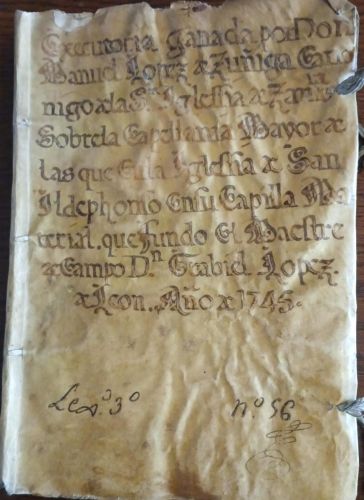 Executoria ganada por Don
Manuel Lopez de Zuñiga Cano
nigo de la Sta Iglessia de Zam.ra
Sobre la Capellania Mayor de
las que en la Iglessia de San
Ildephonso en su Capilla Ma
terial, que fundo el Maestre
de Campo Dn. Grabiel Lopez.
de Leon. Año de 1745.
Leg.º 3º nº 56